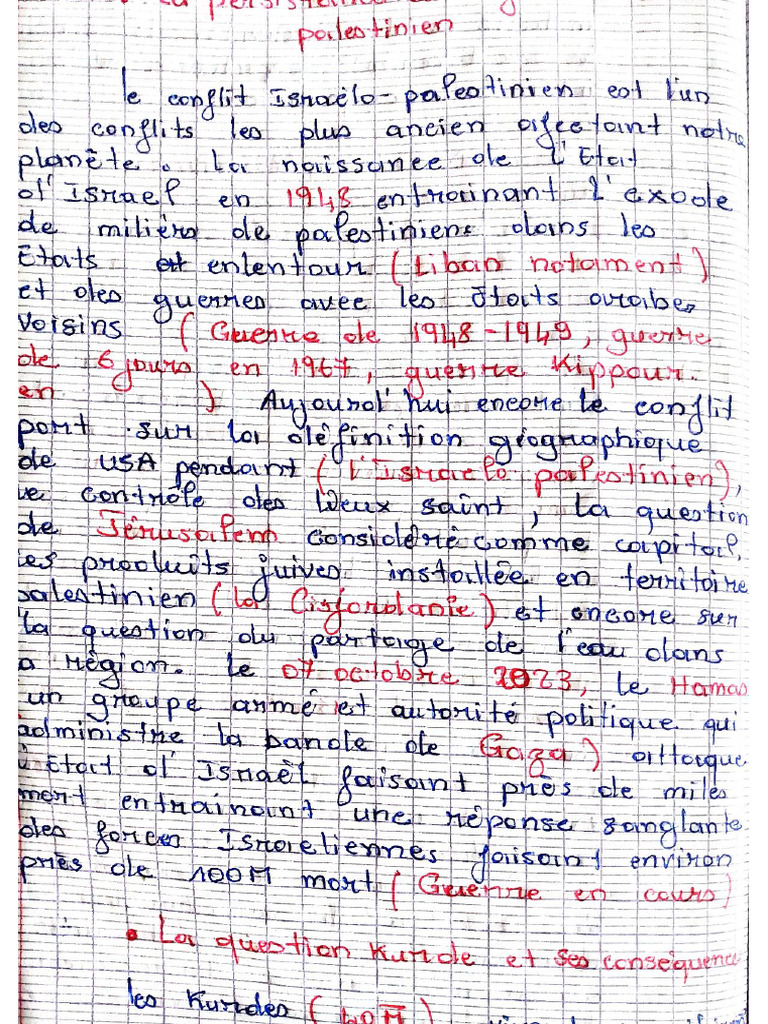 La persistance
palestinien
le conflit Israélo-palestinien est l'un
des conflits les plus ancien affectant notre
planète. La naissance de l'Etat
d'Israel en 1948 entrainant l'exode
de miliers de palestiniens dans les
Etats et enlentour (Liban notament)
et des guerres avec les États arabes
Voisins (Guerre de 1948-1949, guerre
de 6 jours en 1967, guerre Kippour.
en ) Aujourd'hui encore le conflit
port sur la définition géographique
de USA pendant (l'Israelo palestinien),
le contrôle des lieux saint, la question
de Jérusalem considéré comme capital,
les produits juives installée en territoire
palestinien (la Cisjordanie) et encore sur
la question du partage de l'eau dans
a région. Le 07 octobre 2023, le Hamas
un groupe armé et autorité politique qui
administre la bande de Gaza) attaque
Etat d'Israël faisant près de miles
mort entrainant une réponse sanglante
des forces Israeliennes faisant environ
près de 100M mort (Guerre en cours)
• La question Kurde et ses conséquence
les Kurdes (40M)